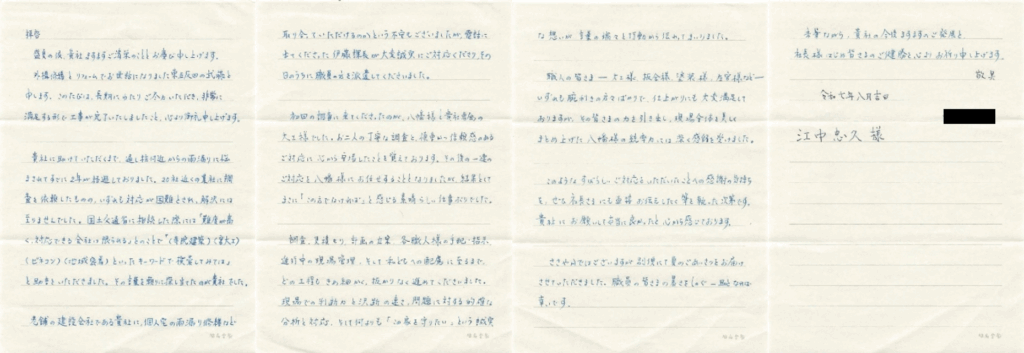 拝啓
盛夏の候、貴社ますますご清栄のこととお喜び申し上げます。
外壁改修とリフォームでお世話になりました東五反田の武藤と
申します。このたびは、長期にわたりご尽力いただき、非常に
満足する形で工事が完了いたしましたこと、心より御礼申し上げます。
貴社に助けていただくまで、通し柱付近からの雨漏りに悩
まされてすでに2年が経過しておりました。20社近くの業社に調
査を依頼したものの、いずれも対応が困難とされ、解決には
至りませんでした。国土交通省に相談した際には「難度が高
く、対応できる会社は限られる」とのことで「(寺院建築)(宮大工)
(ゼネコン)(地域密着)といったキーワードで検索してみては」
と助言をいただきました。その言葉を頼りに探し当てたのが貴社でした。
老舗の建設会社である貴社に、個人宅の雨漏り修繕など
取り合っていただけるのかという不安もございましたが、弊社に
いらしてくださった伊藤様が大変誠実にご対応くださり、その
日のうちに職員の方を派遣してくださいました。
初回の調査に来てくださったのが、八幡様と
大工様でした。お二人の丁寧な調査と、誠実かつ信頼感のある
ご対応に心から安堵したことを覚えております。その後の一連の
ご対応を八幡様にお任せすることとなりましたが、結果として
まさに「この方でなければ」と感じる素晴らしい仕事ぶりでした。
調査、見積もり、計画の立案、各職人様の手配・指示、
進行中の現場管理、そして私どもへの配慮に至るまで、
どの工程もきめ細かく、抜かりなく進めてくださいました。
現場での判断力と決断の速さ、問題に対する的確な
分析と対応、そして何よりも「この家を守りたい」という誠実
な思いが言葉の端々と行動から伝わってまいりました。
職人の皆さま―大工様、板金様、塗装様、左官様など―
いずれも腕利きの方々ばかりで、仕上がりにも大変満足して
おりますが、その皆さまの力を引き出し、現場全体を見事に
まとめ上げた八幡様の統率力には深く感銘を受けました。
このようなすばらしいご対応をいただいたことへの感謝の気持ち
を、ぜひ社長さまにも直接お伝えしたく筆を執った次第です。
貴社にお願いして本当に良かったと、心から感じております。
ささやかではございますが、別便にて夏のごあいさつをお届け
させていただきました。職員の皆さまの暑さをしのぐ一助となれば
幸いです。
末筆ながら、貴社の今後ますますのご発展と
社長様はじめ皆さまのご健康を心よりお祈り申し上げます。
敬具
令和七年八月吉日
江中忠久様